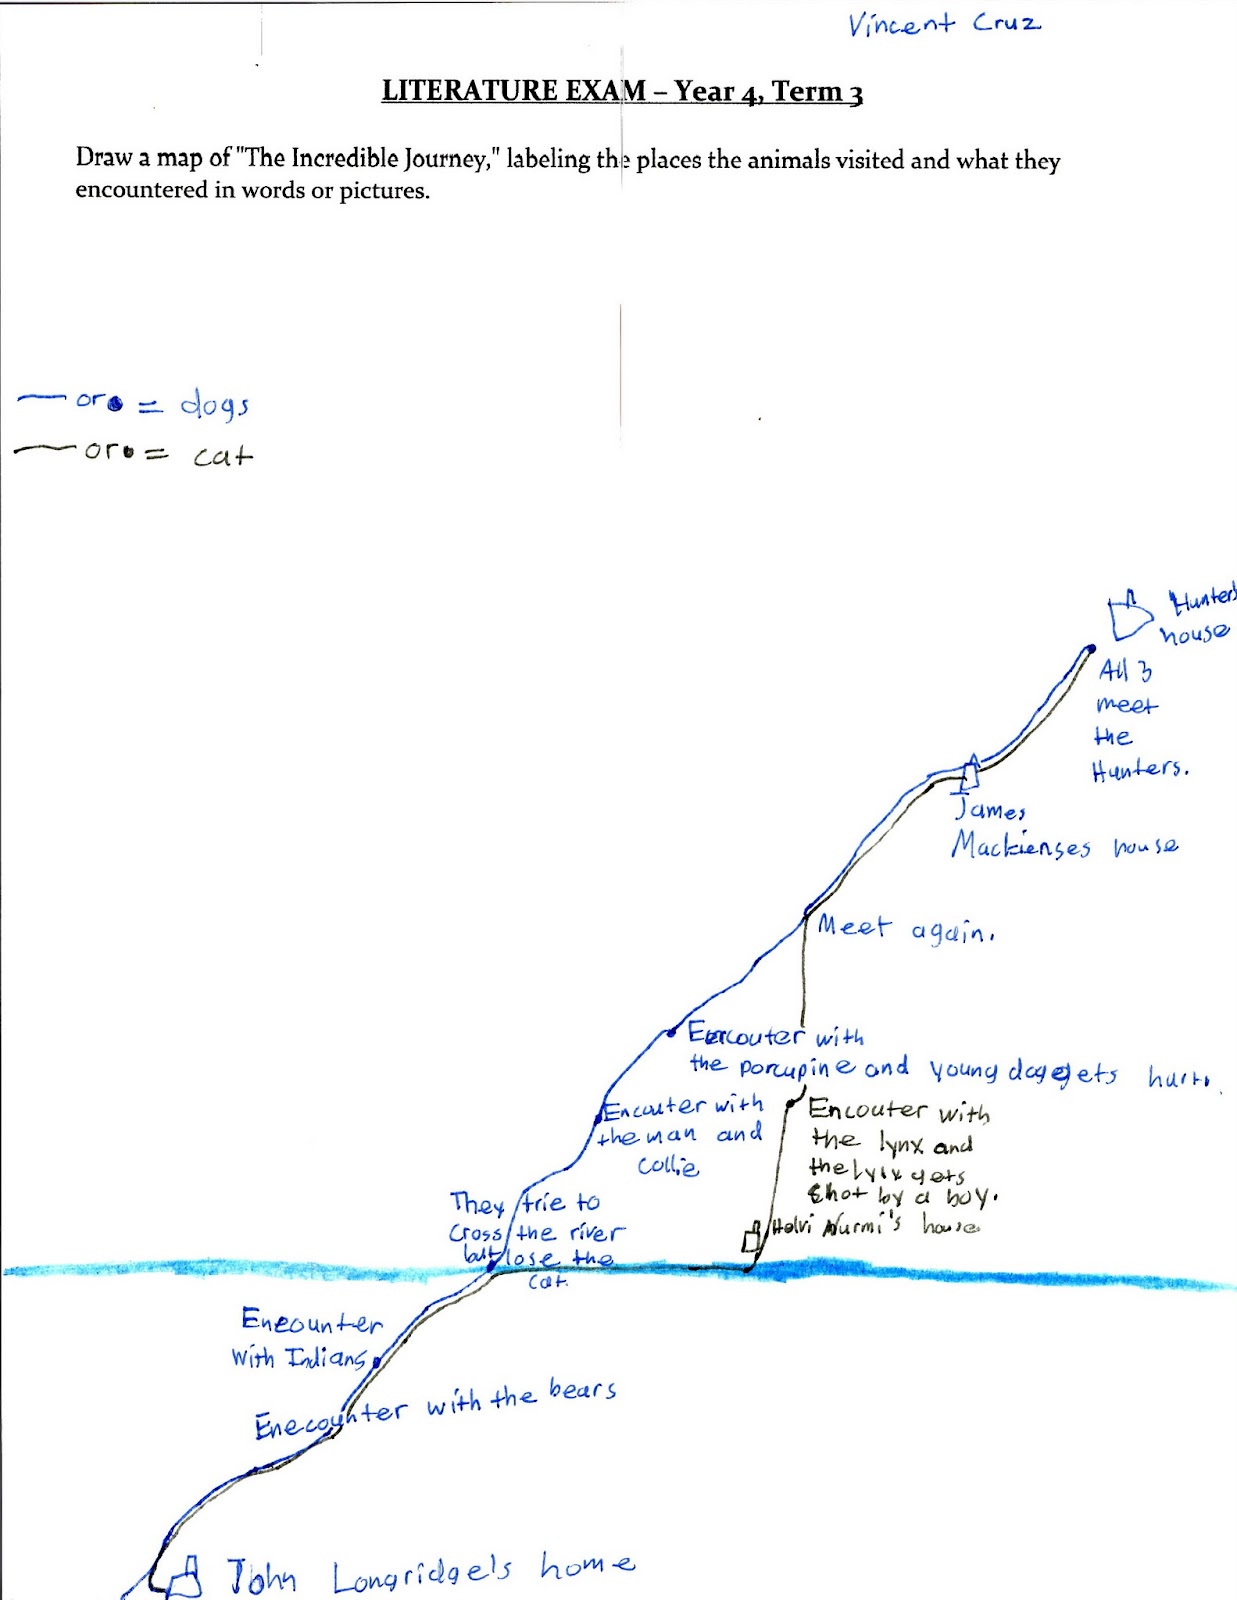 Vincent Cruz
LITERATURE EXAM – Year 4, Term 3
Draw a map of "The Incredible Journey," labeling the places the animals visited and what they
encountered in words or pictures.
— or • = dogs
— or • = cat
Hunters
house
All 3
meet
the
Hunters.
James
Mackienses house
Meet again.
Encouter with
the porcupine and young dog gets hurt.
Encouter with
the man and
Collie
Encouter with
the lynx and
the lylx gets
shot by a boy.
Helvi Nurmi's house
They trie to
cross the river
but lose the
cat.
Enecounter
with Indians
Enecounter with the bears
John Longridge's home